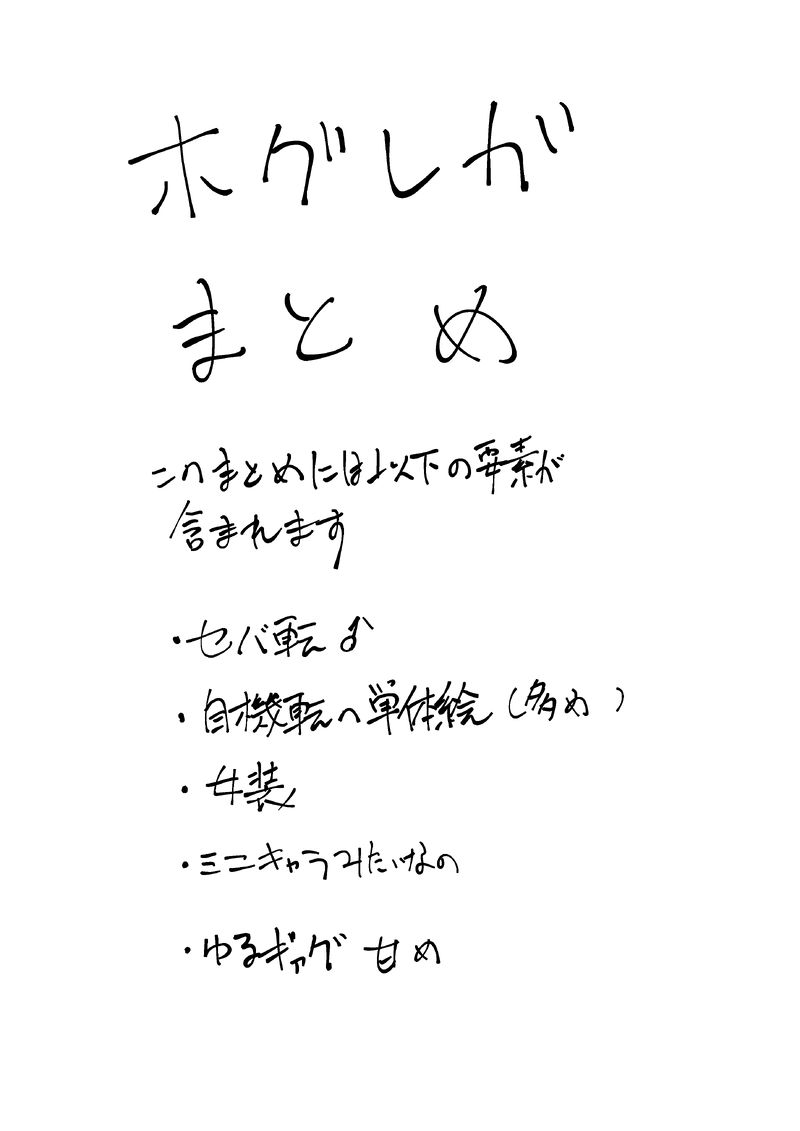 ホグレガ
まとめ
このまとめには以下の要素が
含まれます
・セバ転♂
・自機転の単体絵(多め)
・女装
・ミニキャラみたいなの
・ゆるギャグ 甘め